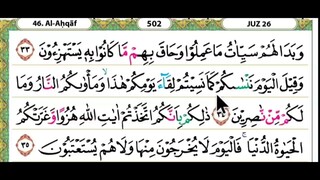 46. Al-Aḥqāf 502 JUZ 26
وَبَدَا لَهُمْ سَيِّـَٔاتُ مَا عَمِلُوا وَحَاقَ بِهِمْ مَّا كَانُوا بِهٖ يَسْتَهْزِءُوْنَ ٣٣
وَقِيْلَ الْيَوْمَ نَنْسٰىكُمْ كَمَا نَسِيْتُمْ لِقَآءَ يَوْمِكُمْ هٰذَا وَمَأْوٰىكُمُ النَّارُ وَمَا
لَكُمْ مِّنْ نّٰصِرِيْنَ ٣٤ ذٰلِكُمْ بِاَنَّكُمُ اتَّخَذْتُمْ اٰيٰتِ اللّٰهِ هُزُوًا وَّغَرَّتْكُمُ
الْحَيٰوةُ الدُّنْيَا ۚ فَالْيَوْمَ لَا يُخْرَجُوْنَ مِنْهَا وَلَا هُمْ يُسْتَعْتَبُوْنَ ٣٥